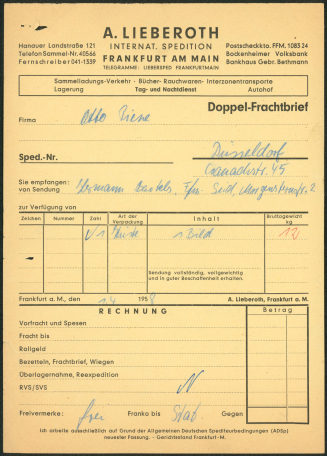 A. LIEBEROTH
INTERNAT. SPEDITION
FRANKFURT AM MAIN
TELEGRAMME: LIEBERSPED FRANKFURTMAIN
Hanauer Landstraße 121
Telefon Sammel-Nr. 40566
Fernschreiber 041-1339
Postscheckkto. FFM. 1083 24
Bockenheimer Volksbank
Bankhaus Gebr. Bethmann
Sammelladungs-Verkehr - Bücher- Rauchwaren- Interzonentransporte
Lagerung Tag- und Nachtdienst Autohof
Doppel-Frachtbrief
Firma Otto
Düsseldorf
Sped.-Nr. 45
Sie empfangen:
von Sendung Hermann
zur Verfügung von
Zeichen Nummer Zahl Art der Verpackung Inhalt Bruttogewicht kg
1 Kiste 1 Bild 12
Sendung vollständig, vollgewichtig
und in guter Beschaffenheit erhalten.
Frankfurt a. M., den 195 A. Lieberoth, Frankfurt a. M.
RECHNUNG Betrag
Vorfracht und Spesen
Fracht bis
Rollgeld
Bezetteln, Frachtbrief, Wiegen
Überlagernahme, Reexpedition
RVS/SVS
Freivermerke: frei Franko bis Gegen
Ich arbeite ausschließlich auf Grund der Allgemeinen Deutschen Spediteurbedingungen (ADSp)
neuester Fassung. - Gerichtsstand Frankfurt-M.